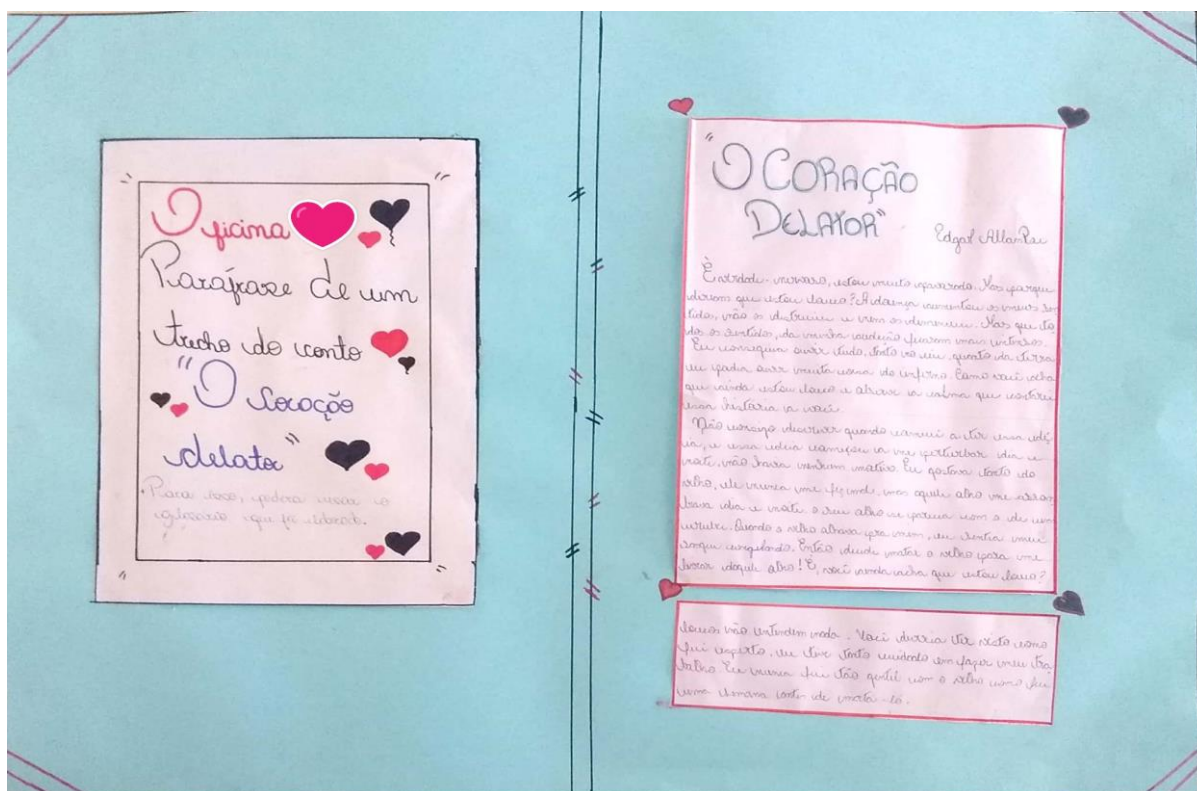 Oficina
Paráfrase de um
trecho do conto
"O Coração
delator"
Para isso, poderá usar o
glossário que foi elaborado.
"O CORAÇÃO
DELATOR"
Edgar Allan Poe
É verdade. nervoso, estou muito apavorado. Mas porque
diriam que estou louco? A doença aumentou os meus sen
tidos, não os destruiu e nem os diminuiu. Mas que to
dos os sentidos, da minha audição ficaram mais intensos.
Eu conseguia ouvir tudo, tanto no céu quanto da terra
eu podia ouvir muita coisa do inferno. Como você acha
que ainda estou louco e observe a calma que contarei
essa história a você.
Não consigo descrever quando comecei a ter essa idé
ia, e essa ideia começou a me perturbar dia e
noite, não havia nenhum motivo. Eu gostava tanto do
velho, ele nunca me fez nada, mas aquele olho me assom
brava dia e noite o seu olho se parecia com o de um
urubu. Quando o velho olhava pra mim, eu sentia meu
sangue congelando. Então decidi matar o velho para me
livrar daquele olho! E, você ainda acha que estou louco?
loucos não entendem nada. Você deveria ter visto como
fui esperto, eu tive tanto cuidado em fazer meu tra
balho Eu nunca fui tão gentil com o velho como fui
uma semana antes de matá-lo.